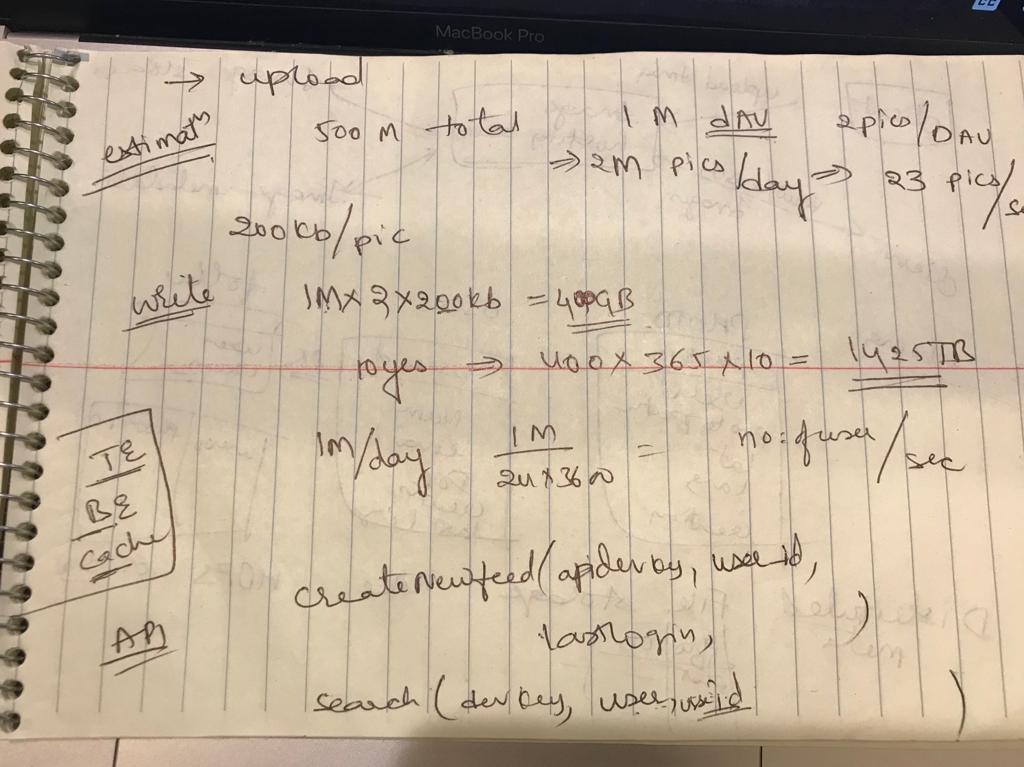 MacBook Pro
→ upload
estimatn 500 M total 1 M dAU 2pics/DAU
⇒ 2M pics/day ⇒ 23 pics/se
200kb/pic
write 1M × 2 × 200kb = 400GB
10yes ⇒ 400 × 365 × 10 = 1425TB
1M/day 1M / 24×3600 = no: of user/sec
TE
BE
cache
createNewfeed(apidevkey, userid,
lastlogin, )
API
search (devkey, user, userid )